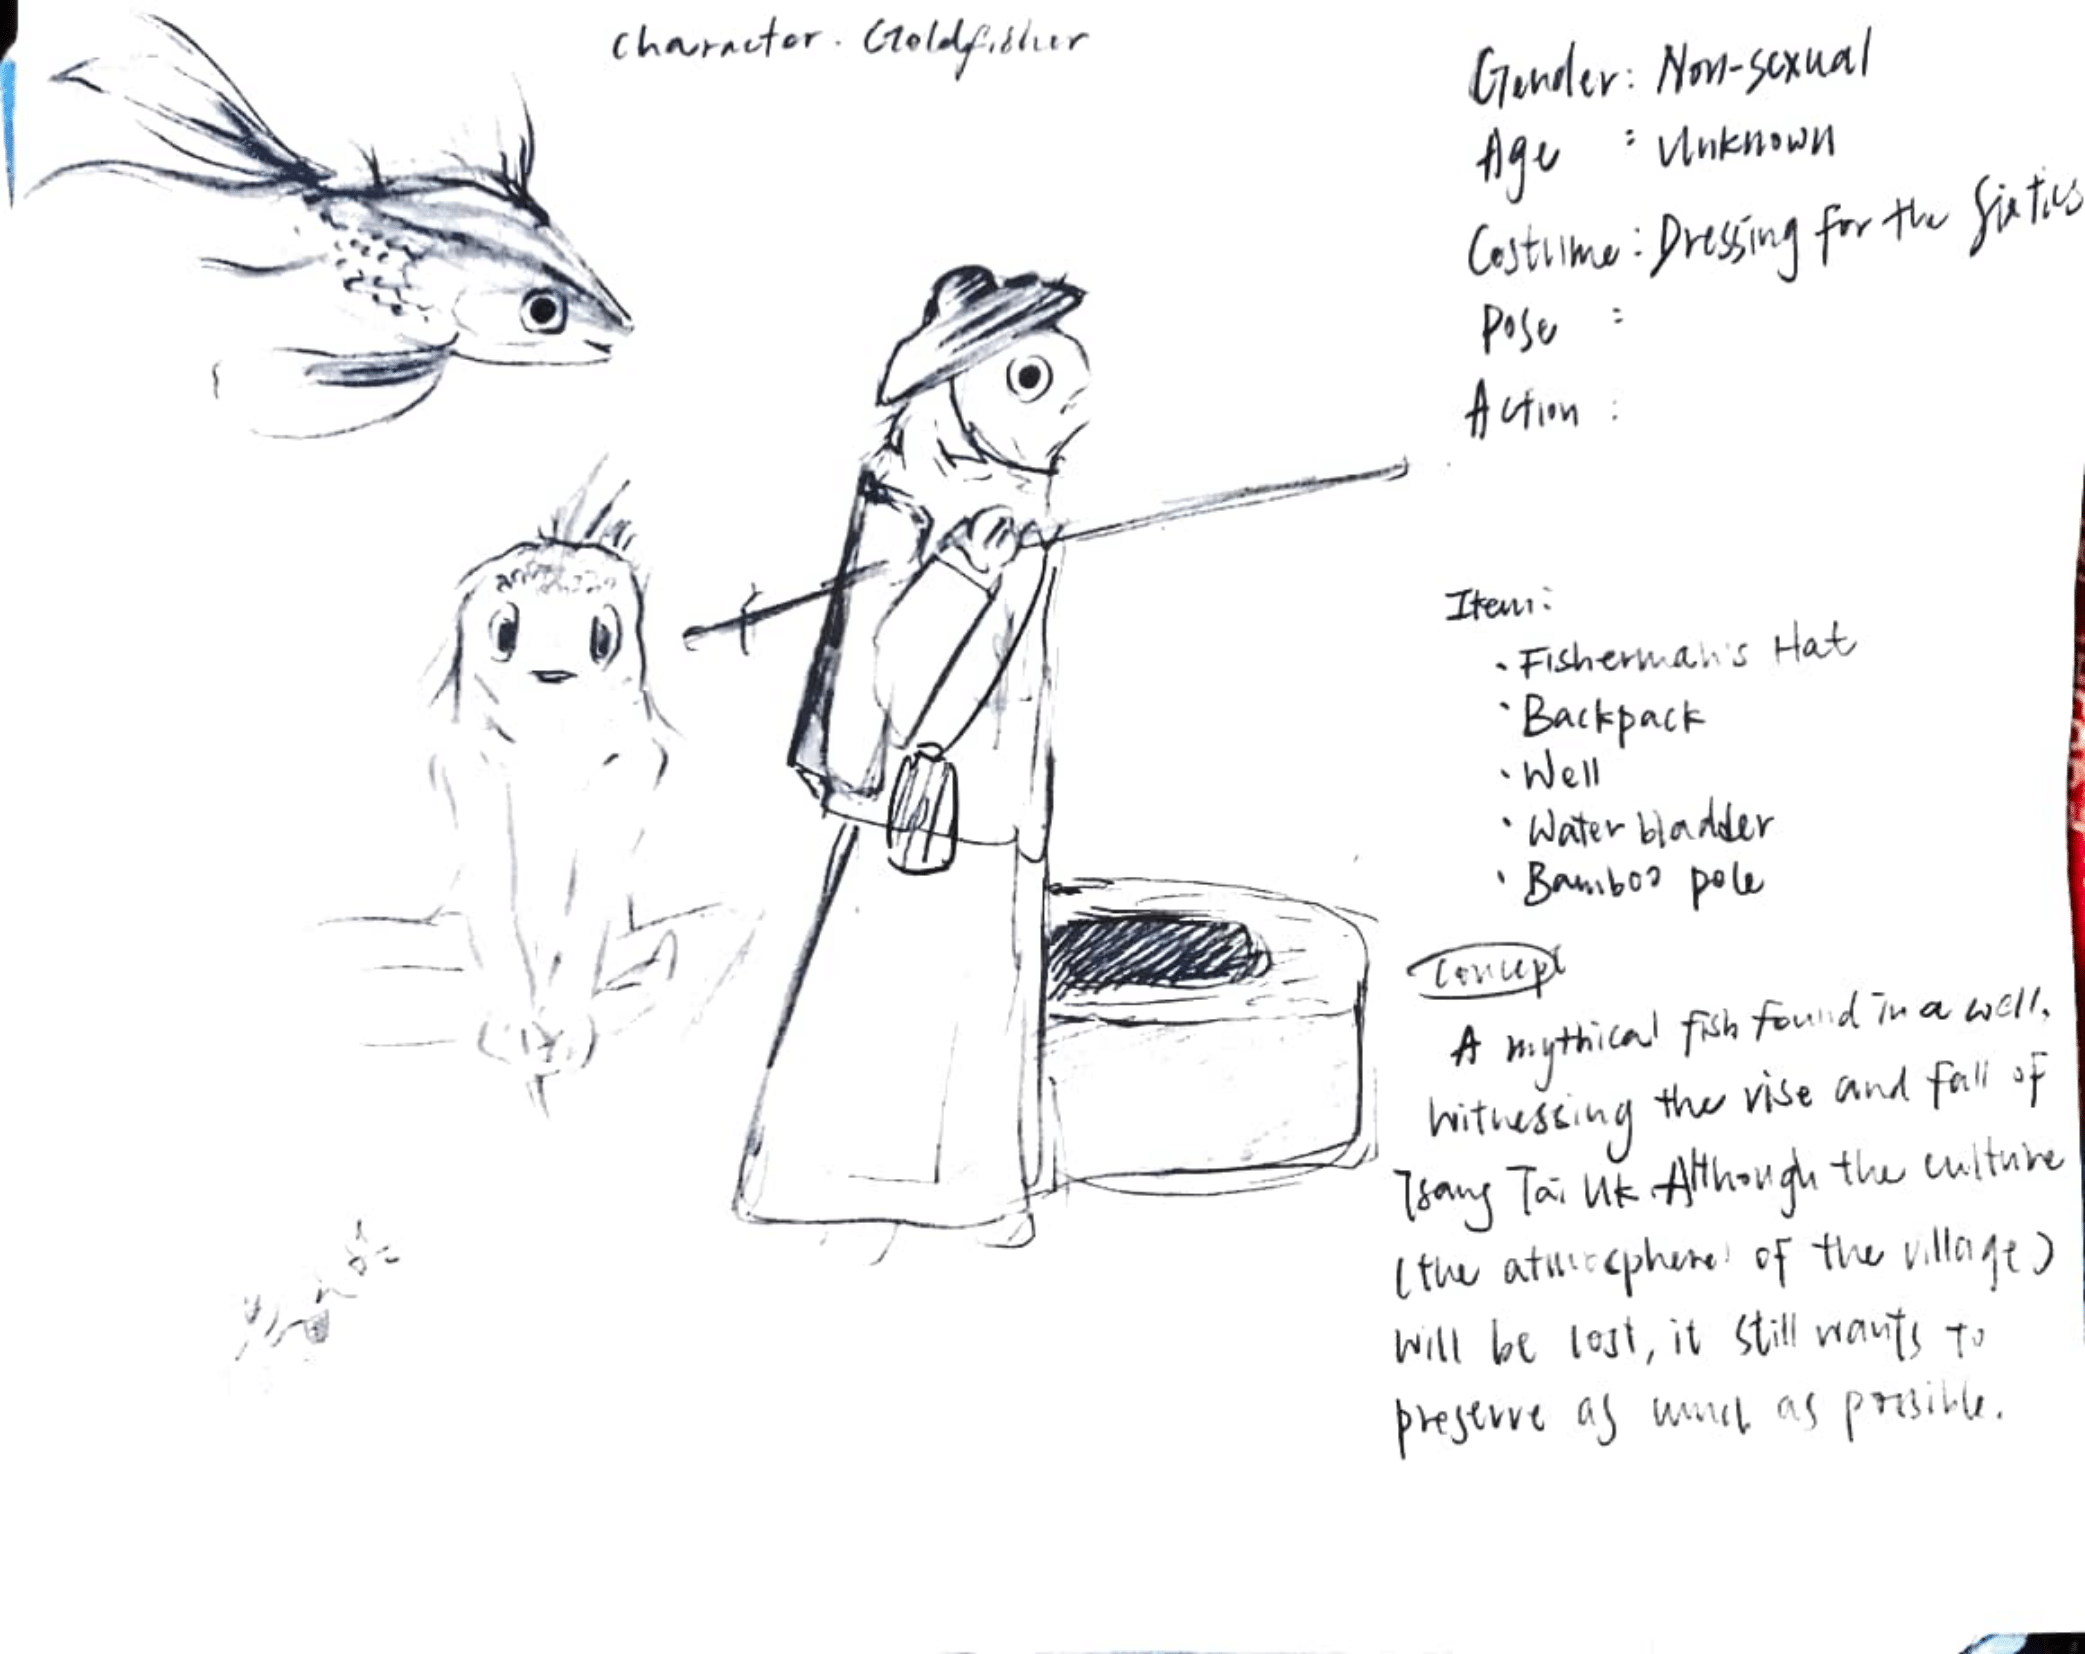 Character. Goldfisher
Gender: Non-sexual
Age : Unknown
Costume: Dressing for the Sixties
Pose :
Action :
Item:
· Fisherman's Hat
· Backpack
· Well
· Water bladder
· Bamboo pole
Concept
A mythical fish found in a well.
witnessing the rise and fall of
Tsang Tai Uk. Although the culture
(the atmosphere of the village)
will be lost, it still wants to
preserve as much as possible.